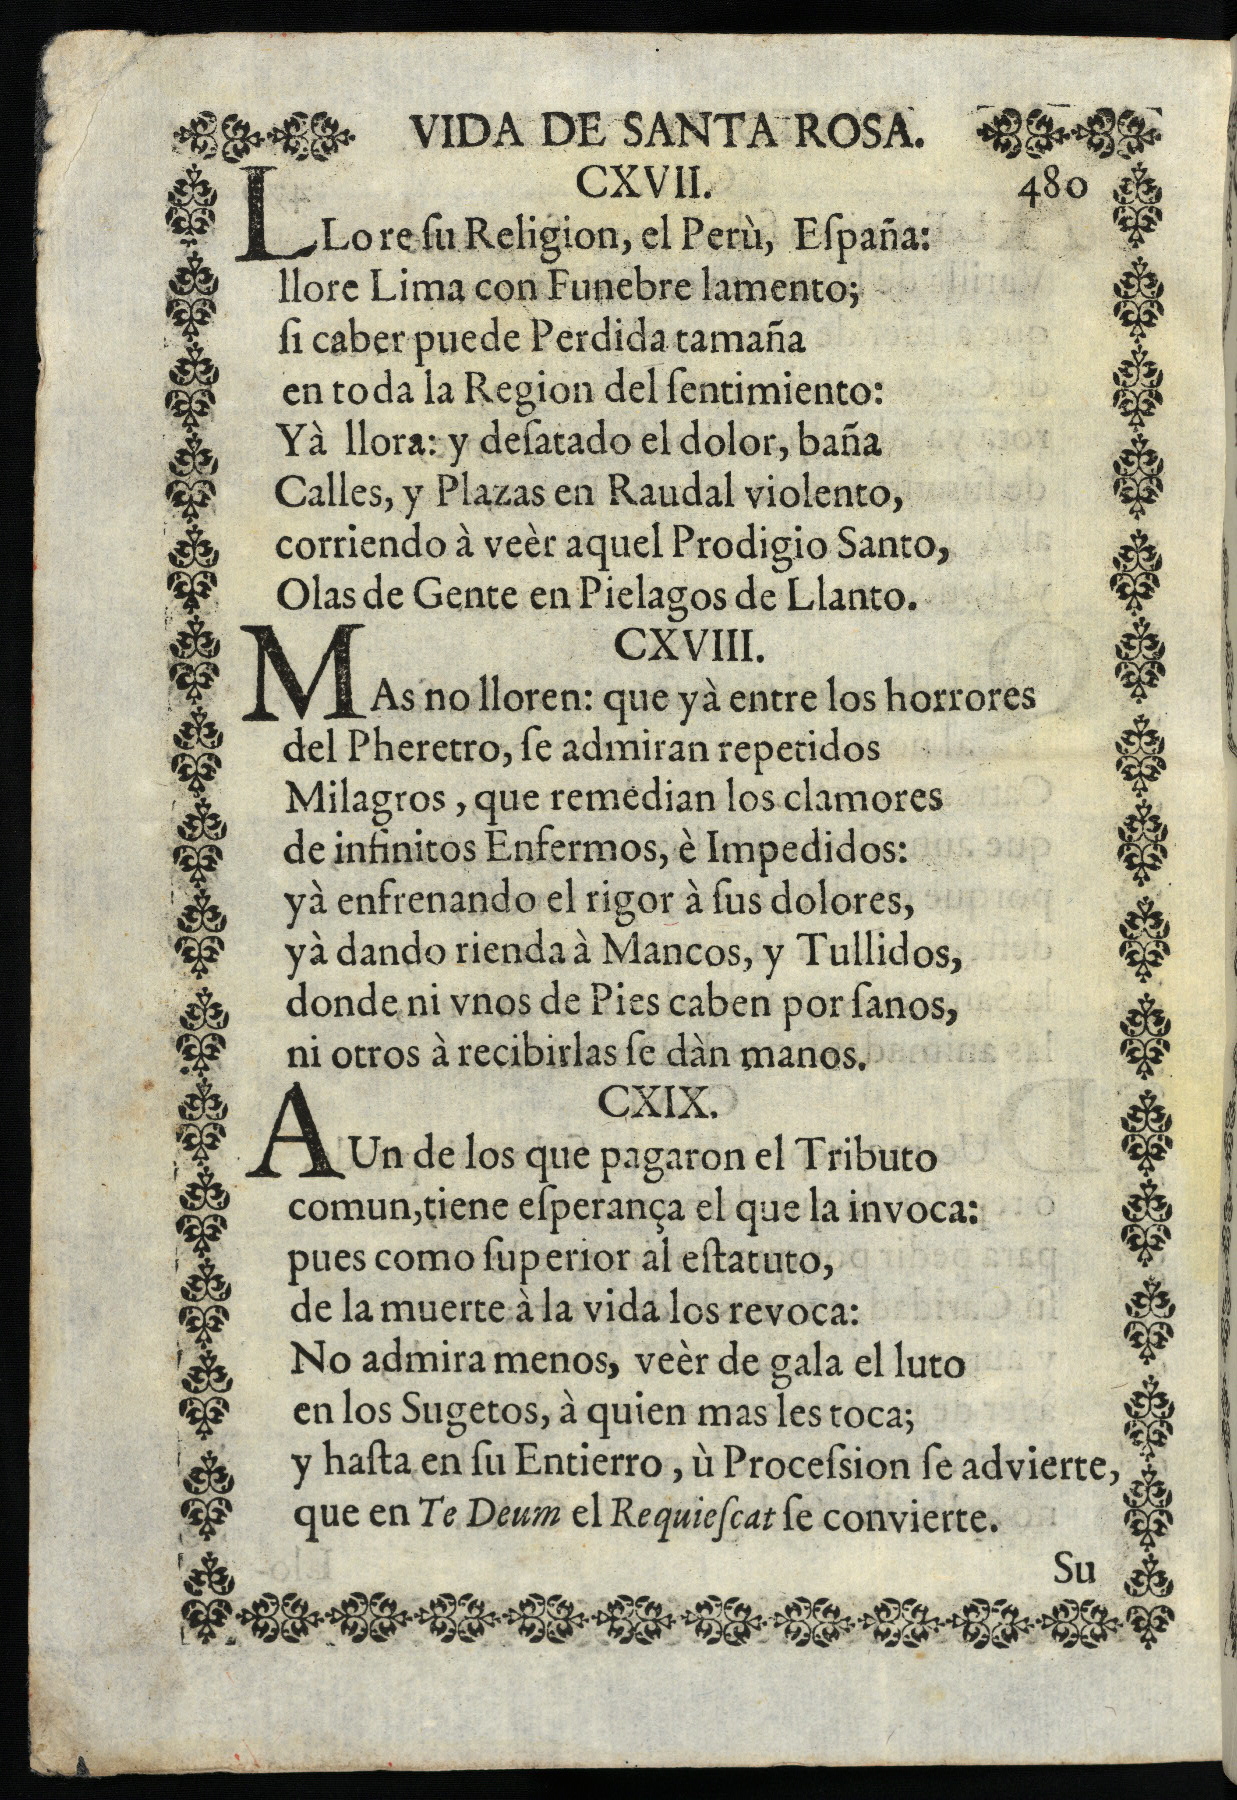 VIDA DE SANTA ROSA.
CXVII. 480
LLore ſu Religion, el Perù, Eſpaña:
llore Lima con Funebre lamento;
ſi caber puede Perdida tamaña
en toda la Region del ſentimiento:
Yà llora: y deſatado el dolor, baña
Calles, y Plazas en Raudal violento,
corriendo à veèr aquel Prodigio Santo,
Olas de Gente en Pielagos de Llanto.
CXVIII.
MAs no lloren: que yà entre los horrores
del Pheretro, ſe admiran repetidos
Milagros, que remedian los clamores
de infinitos Enfermos, è Impedidos:
yà enfrenando el rigor à ſus dolores,
yà dando rienda à Mancos, y Tullidos,
donde ni vnos de Pies caben por ſanos,
ni otros à recibirlas ſe dàn manos.
CXIX.
AUn de los que pagaron el Tributo
comun, tiene eſperança el que la invoca:
pues como ſuperior al eſtatuto,
de la muerte à la vida los revoca:
No admira menos, veèr de gala el luto
en los Sugetos, à quien mas les toca;
y haſta en ſu Entierro, ù Proceſsion ſe advierte,
que en Te Deum el Requieſcat ſe convierte.
Su